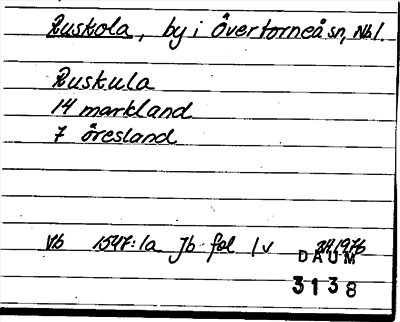 Ruskola, by i Övertorneå sn, Nbl.
Ruskula
14 markland
7 öresland
Vb 1547:1a Jb fol 1v
DAUM
3138